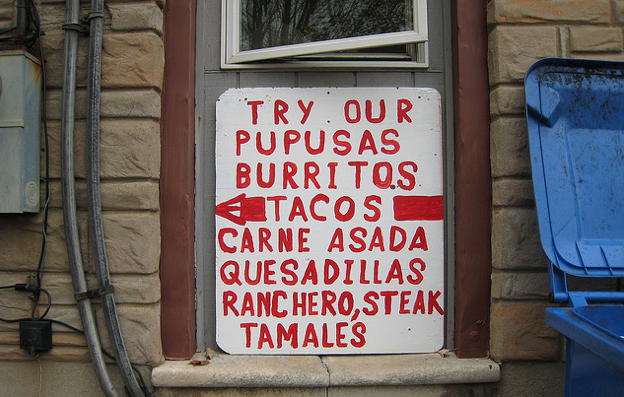 TRY OUR
PUPUSAS
BURRITOS
TACOS
CARNE ASADA
QUESADILLAS
RANCHERO, STEAK
TAMALES